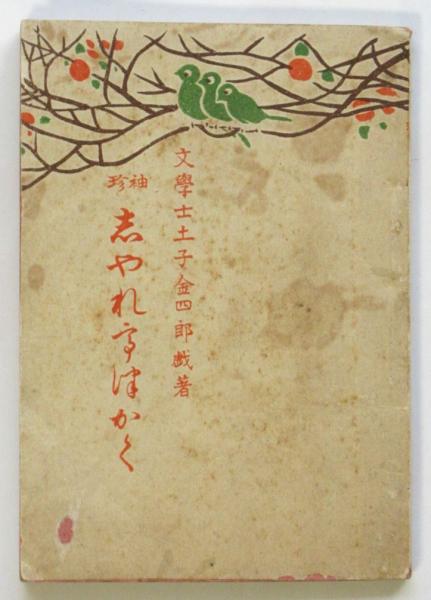 文學士土子金四郎戯著
袖珍
志やれ亭津かく